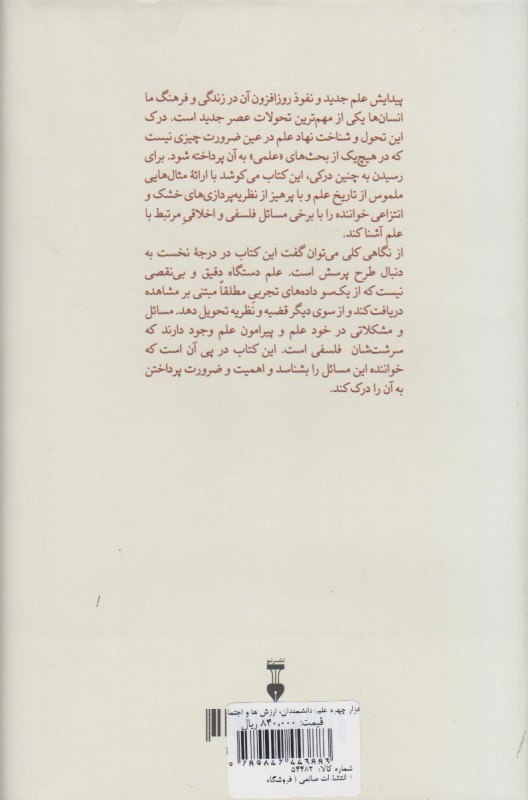 پیدایش علم جدید و نفوذ روزافزون آن در زندگی و فرهنگ ما
انسان‌ها یکی از مهم‌ترین تحولات عصر جدید است. درک
این تحول و شناخت نهاد علم در عین ضرورت چیزی نیست
که در هیچ‌یک از بحث‌های «علمی» به آن پرداخته شود. برای
رسیدن به چنین درکی، این کتاب می‌کوشد با ارائهٔ مثال‌هایی
ملموس از تاریخ علم و با پرهیز از نظریه‌پردازی‌های خشک و
انتزاعی خواننده را با برخی مسائل فلسفی و اخلاقیِ مرتبط با
علم آشنا کند.
از نگاهی کلی می‌توان گفت این کتاب در درجهٔ نخست به
دنبال طرح پرسش است. علم دستگاه دقیق و بی‌نقصی
نیست که از یک‌سو داده‌های تجربیِ مطلقاً مبتنی بر مشاهده
دریافت کند و از سوی دیگر قضیه و نظریه تحویل دهد. مسائل
و مشکلاتی در خود علم و پیرامون علم وجود دارند که
سرشت‌شان فلسفی است. این کتاب در پی آن است که
خواننده این مسائل را بشناسد و اهمیت و ضرورت پرداختن
به آن را درک کند.
نشر نو
هزار چهره علم: دانشمندان، ارزش ها و اجتما
قیمت: ۸۴۰,۰۰۰ ریال
9 789647 443883
شماره کالا: ۵۴۴۸۲
انتشارات صانعی | فروشگاه